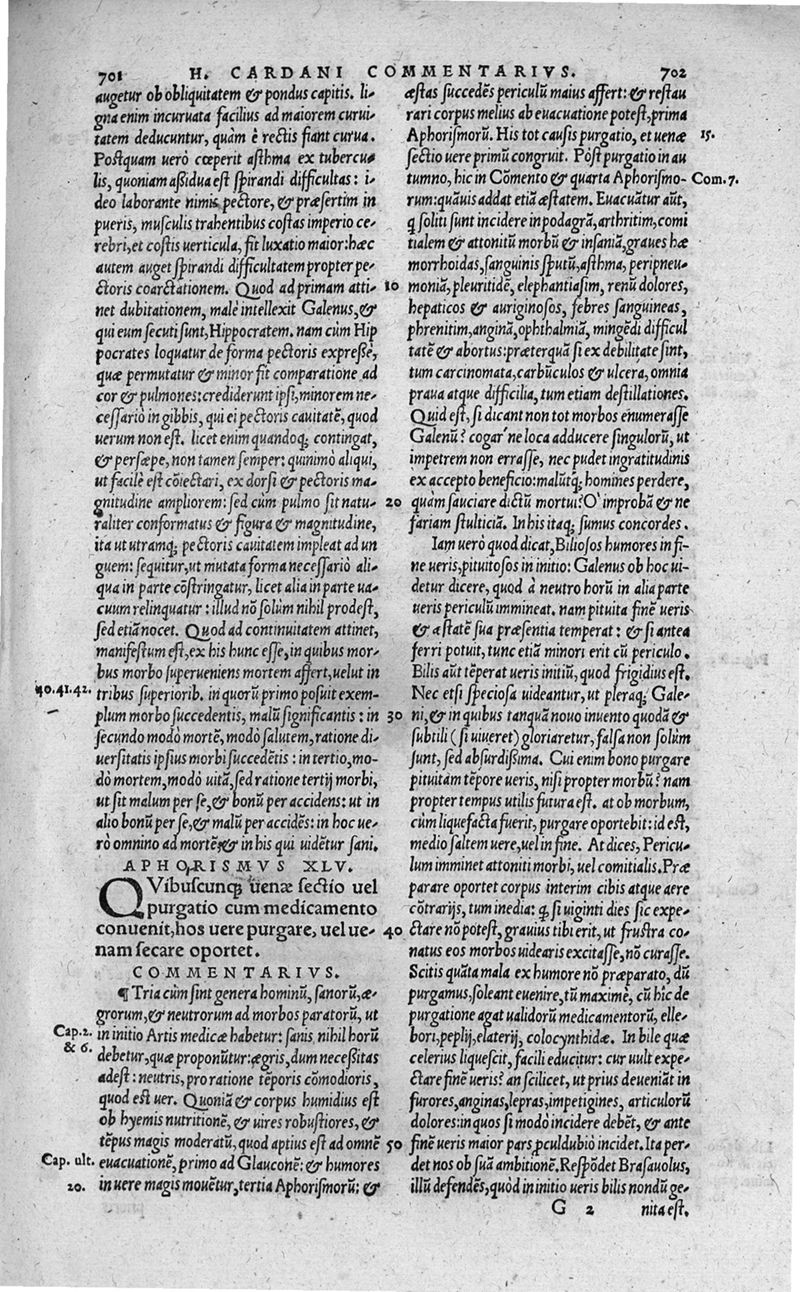 701 H. CARDANI COMMENTARIVS. 702
augetur ob obliquitatem & pondus capitis. li-
gna enim incuruata facilius ad maiorem curui
tatem deducuntur, quàm è rectis fiant curua.
Postquam uerò cœperit asthma ex tubercu
lis, quoniam aßidua est spirandi difficultas: i-
deo laborante nimis pectore, & præsertim in
pueris, musculis trahentibus costas imperio ce-
rebri, et costis uerticula, fit luxatio maior: hæc
autem auget spirandi difficultatem propter pe-
ctoris coarctationem. Quod ad primam atti-
net dubitationem, malè intellexit Galenus, &
qui eum secuti sunt, Hippocratem. nam cùm Hip
pocrates loquatur de forma pectoris expreßè,
quæ permutatur & minor fit comparatione ad
cor & pulmones: crediderunt ipsi, minorem ne-
cessariò in gibbis, qui ei pectoris cauitatẽ, quod
uerum non est. licet enim quandoq; contingat,
& persæpe, non tamen semper: quinimò aliqui,
ut facilè est cõiectari, ex dorsi & pectoris ma-
gnitudine ampliorem: sed cùm pulmo sit natu-
raliter conformatus & figura & magnitudine,
ita ut utramq; pectoris cauitatem impleat ad un
guem: sequitur, ut mutata forma necessariò ali-
qua in parte cõstringatur, licet alia in parte ua-
cuum relinquatur: illud nõ solùm nihil prodest,
sed etiã nocet. Quod ad continuitatem attinet,
manifestum est, ex his hunc esse, in quibus mor-
bus morbo superueniens mortem affert, uelut in
40.41.42. tribus superiorib. in quorũ primo posuit exem-
plum morbo succedentis, malũ significantis: in
secundo modò mortẽ, modò salutem, ratione di-
uersitatis ipsius morbi succedẽtis: in tertio, mo-
dò mortem, modò uitã, sed ratione tertij morbi,
ut sit malum per se, & bonũ per accidens: ut in
alio bonũ per se, & malũ per accidẽs: in hoc ue-
rò omnino ad mortẽ, & in his qui uidẽtur sani.
APHORISMVS XLV.
QVibuscunq; uenæ sectio uel
purgatio cum medicamento
conuenit, hos uere purgare, uel ue-
nam secare oportet.
COMMENTARIVS.
¶ Tria cùm sint genera hominũ, sanorũ, æ-
grorum, & neutrorum ad morbos paratorũ, ut
Cap. 2. in initio Artis medicæ habetur: sanis nihil horũ
& 6. debetur, quæ proponũtur: ægris, dum neceßitas
adest: neutris, pro ratione tẽporis cõmodioris,
quod est uer. Quoniã & corpus humidius est
ob hyemis nutritionẽ, & uires robustiores, &
tẽpus magis moderatũ, quod aptius est ad omnẽ
Cap. ult. euacuationẽ, primo ad Glauconẽ: & humores
20. in uere magis mouẽtur, tertia Aphorismorũ: &
æstas succedẽs periculũ maius affert: & restau
rari corpus melius ab euacuatione potest, prima
Aphorismorũ. His tot causis purgatio, et uenæ 15.
sectio uere primũ congruit. Pòst purgatio in au
tumno, hic in Cõmento & quarta Aphorismo- Com. 7.
rum: quãuis addat etiã æstatem. Euacuãtur aũt,
q̃ soliti sunt incidere in podagrã, arthritim, comi
tialem & attonitũ morbũ & insaniã, graues hæ
morrhoidas, sanguinis sputũ, asthma, peripneu-
10 moniã, pleuritidẽ, elephantiasim, renũ dolores,
hepaticos & auriginosos, febres sanguineas,
phrenitim, anginã, ophthalmiã, mingẽdi difficul
tatẽ & abortus: præterquã si ex debilitate sint,
tum carcinomata, carbũculos & ulcera, omnia
praua atque difficilia, tum etiam destillationes.
Quid est, si dicant non tot morbos enumerasse
Galenũ? cogar'ne loca adducere singulorũ, ut
impetrem non errasse, nec pudet ingratitudinis
ex accepto beneficio: malũtq; homines perdere,
20 quàm sauciare dictũ mortui? O improbã & ne
fariam stultitiã. In his itaq; sumus concordes.
Iam uerò quod dicat, Biliosos humores in fi-
ne ueris, pituitosos in initio: Galenus ob hoc ui-
detur dicere, quod à neutro horũ in alia parte
ueris periculũ immineat. nam pituita finẽ ueris
& æstatẽ sua præsentia temperat: & si antea
ferri potuit, tunc etiã minori erit cũ periculo.
Bilis aũt tẽperat ueris initiũ, quod frigidius est.
Nec etsi speciosa uideantur, ut pleraq; Gale-
30 ni, & in quibus tanquã nouo inuento quodã &
subtili (si uiueret) gloriaretur, falsa non solùm
sunt, sed absurdißima. Cui enim bono purgare
pituitam tẽpore ueris, nisi propter morbũ? nam
propter tempus utilis futura est. at ob morbum,
cùm liquefacta fuerit, purgare oportebit: id est,
medio saltem uere, uel in fine. At dices, Pericu-
lum imminet attoniti morbi, uel comitialis. Præ
parare oportet corpus interim cibis atque aere
cõtrarijs, tum inedia: q̃ si uiginti dies sic expe-
40 ctare nõ potest, grauius tibi erit, ut frustra co-
natus eos morbos uidearis excitasse, nõ curasse.
Scitis quãta mala ex humore nõ præparato, dũ
purgamus, soleant euenire, tũ maximè, cũ hic de
purgatione agat ualidorũ medicamentorũ, elle-
bori, peplij, elaterij, colocynthidæ. In bile quæ
celerius liquescit, facili educitur: cur uult expe-
ctare finẽ ueris? an scilicet, ut prius deueniãt in
furores, anginas, lepras, impetigines, articulorũ
dolores: in quos si modò incidere debẽt, & ante
50 finẽ ueris maior pars ꝓculdubiò incidet. Ita per-
det nos ob suã ambitionẽ. Respõdet Brasauolus,
illũ defendẽs, quòd in initio ueris bilis nondũ ge-
G 2 nita est.